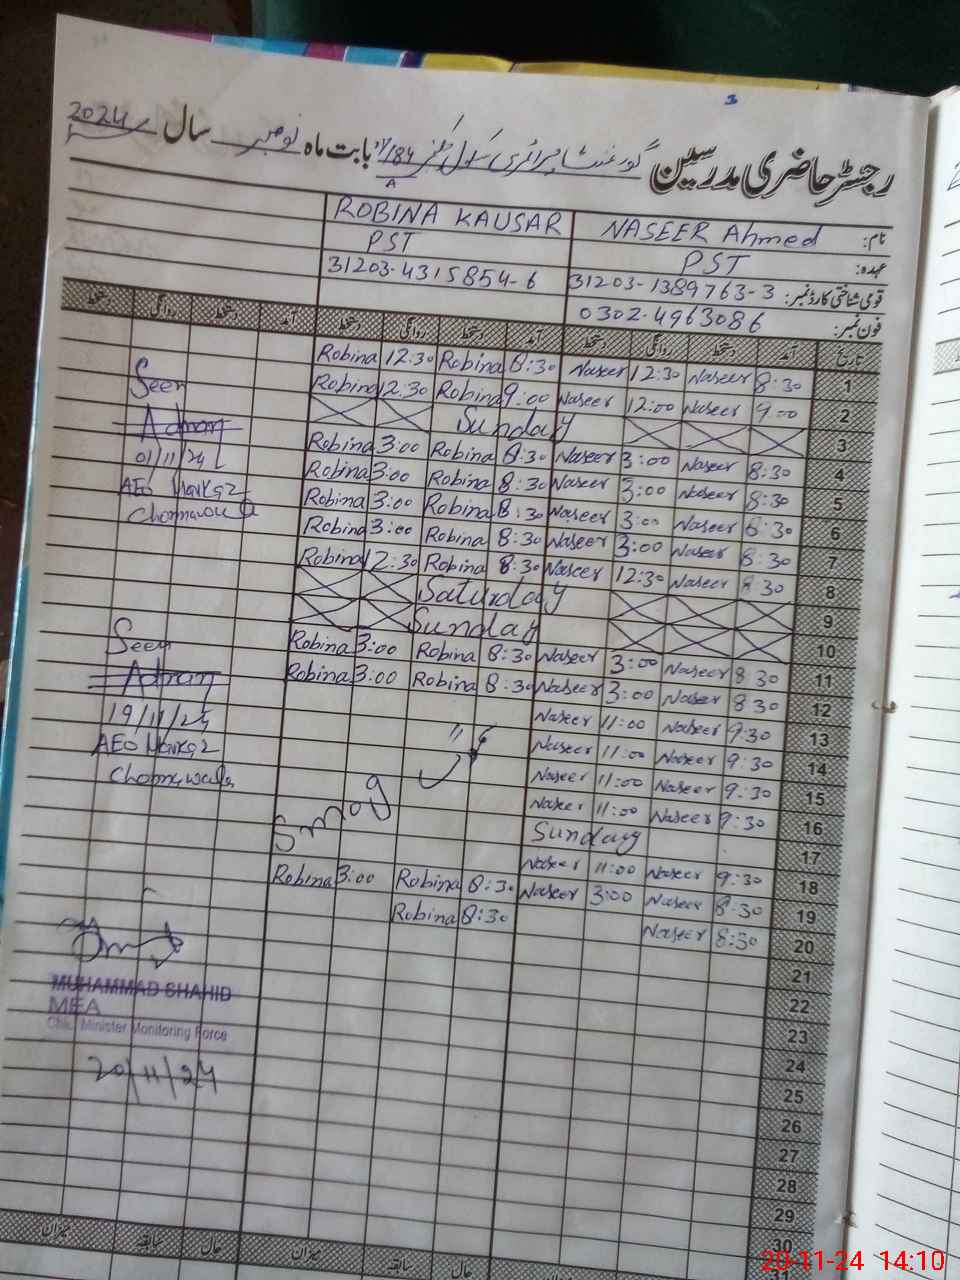 رجسٹر حاضری مدرسین گورنمنٹ پرائمری سکول 184/7 بابت ماہ نومبر سال 2024
A
نام: NASEER Ahmed ROBINA KAUSAR
عہدہ: PST PST
قومی شناختی کارڈ نمبر: 31203-1389763-3 31203-4315854-6
فون نمبر: 0302-4963086
تاریخ آمد دستخط روانگی دستخط آمد دستخط روانگی دستخط آمد دستخط روانگی دستخط
1 8:30 Naseer 12:30 Naseer 8:30 Robina 12:30 Robina
2 9:00 Naseer 12:00 Naseer 9:00 Robina 12:30 Robina
3 Sunday
4 8:30 Naseer 3:00 Naseer 8:30 Robina 3:00 Robina
5 8:30 Naseer 3:00 Naseer 8:30 Robina 3:00 Robina
6 8:30 Naseer 3:00 Naseer 8:30 Robina 3:00 Robina
7 8:30 Naseer 3:00 Naseer 8:30 Robina 3:00 Robina
8 8:30 Naseer 12:30 Naseer 8:30 Robina 12:30 Robina
9 Saturday
10 Sunday
11 8:30 Naseer 3:00 Naseer 8:30 Robina 3:00 Robina
12 8:30 Naseer 3:00 Naseer 8:30 Robina 3:00 Robina
13 9:30 Naseer 11:00 Naseer
14 9:30 Naseer 11:00 Naseer
15 9:30 Naseer 11:00 Naseer
16 9:30 Naseer 11:00 Naseer
Smog
17 Sunday
18 9:30 Naseer 11:00 Naseer
19 8:30 Naseer 3:00 Naseer 8:30 Robina 3:00 Robina
20 8:30 Naseer 8:30 Robina
21
22
23
24
25
26
27
28
29
30
31
Seen
Adnan
01/11/24
AEO Markaz
Seen
Adnan
19/11/24
AEO Markaz
MUHAMMAD SHAHID
MEA
Chief Minister Monitoring Force
20/11/24
حال سابقہ میزان حال سابقہ میزان
20-11-24 14:10